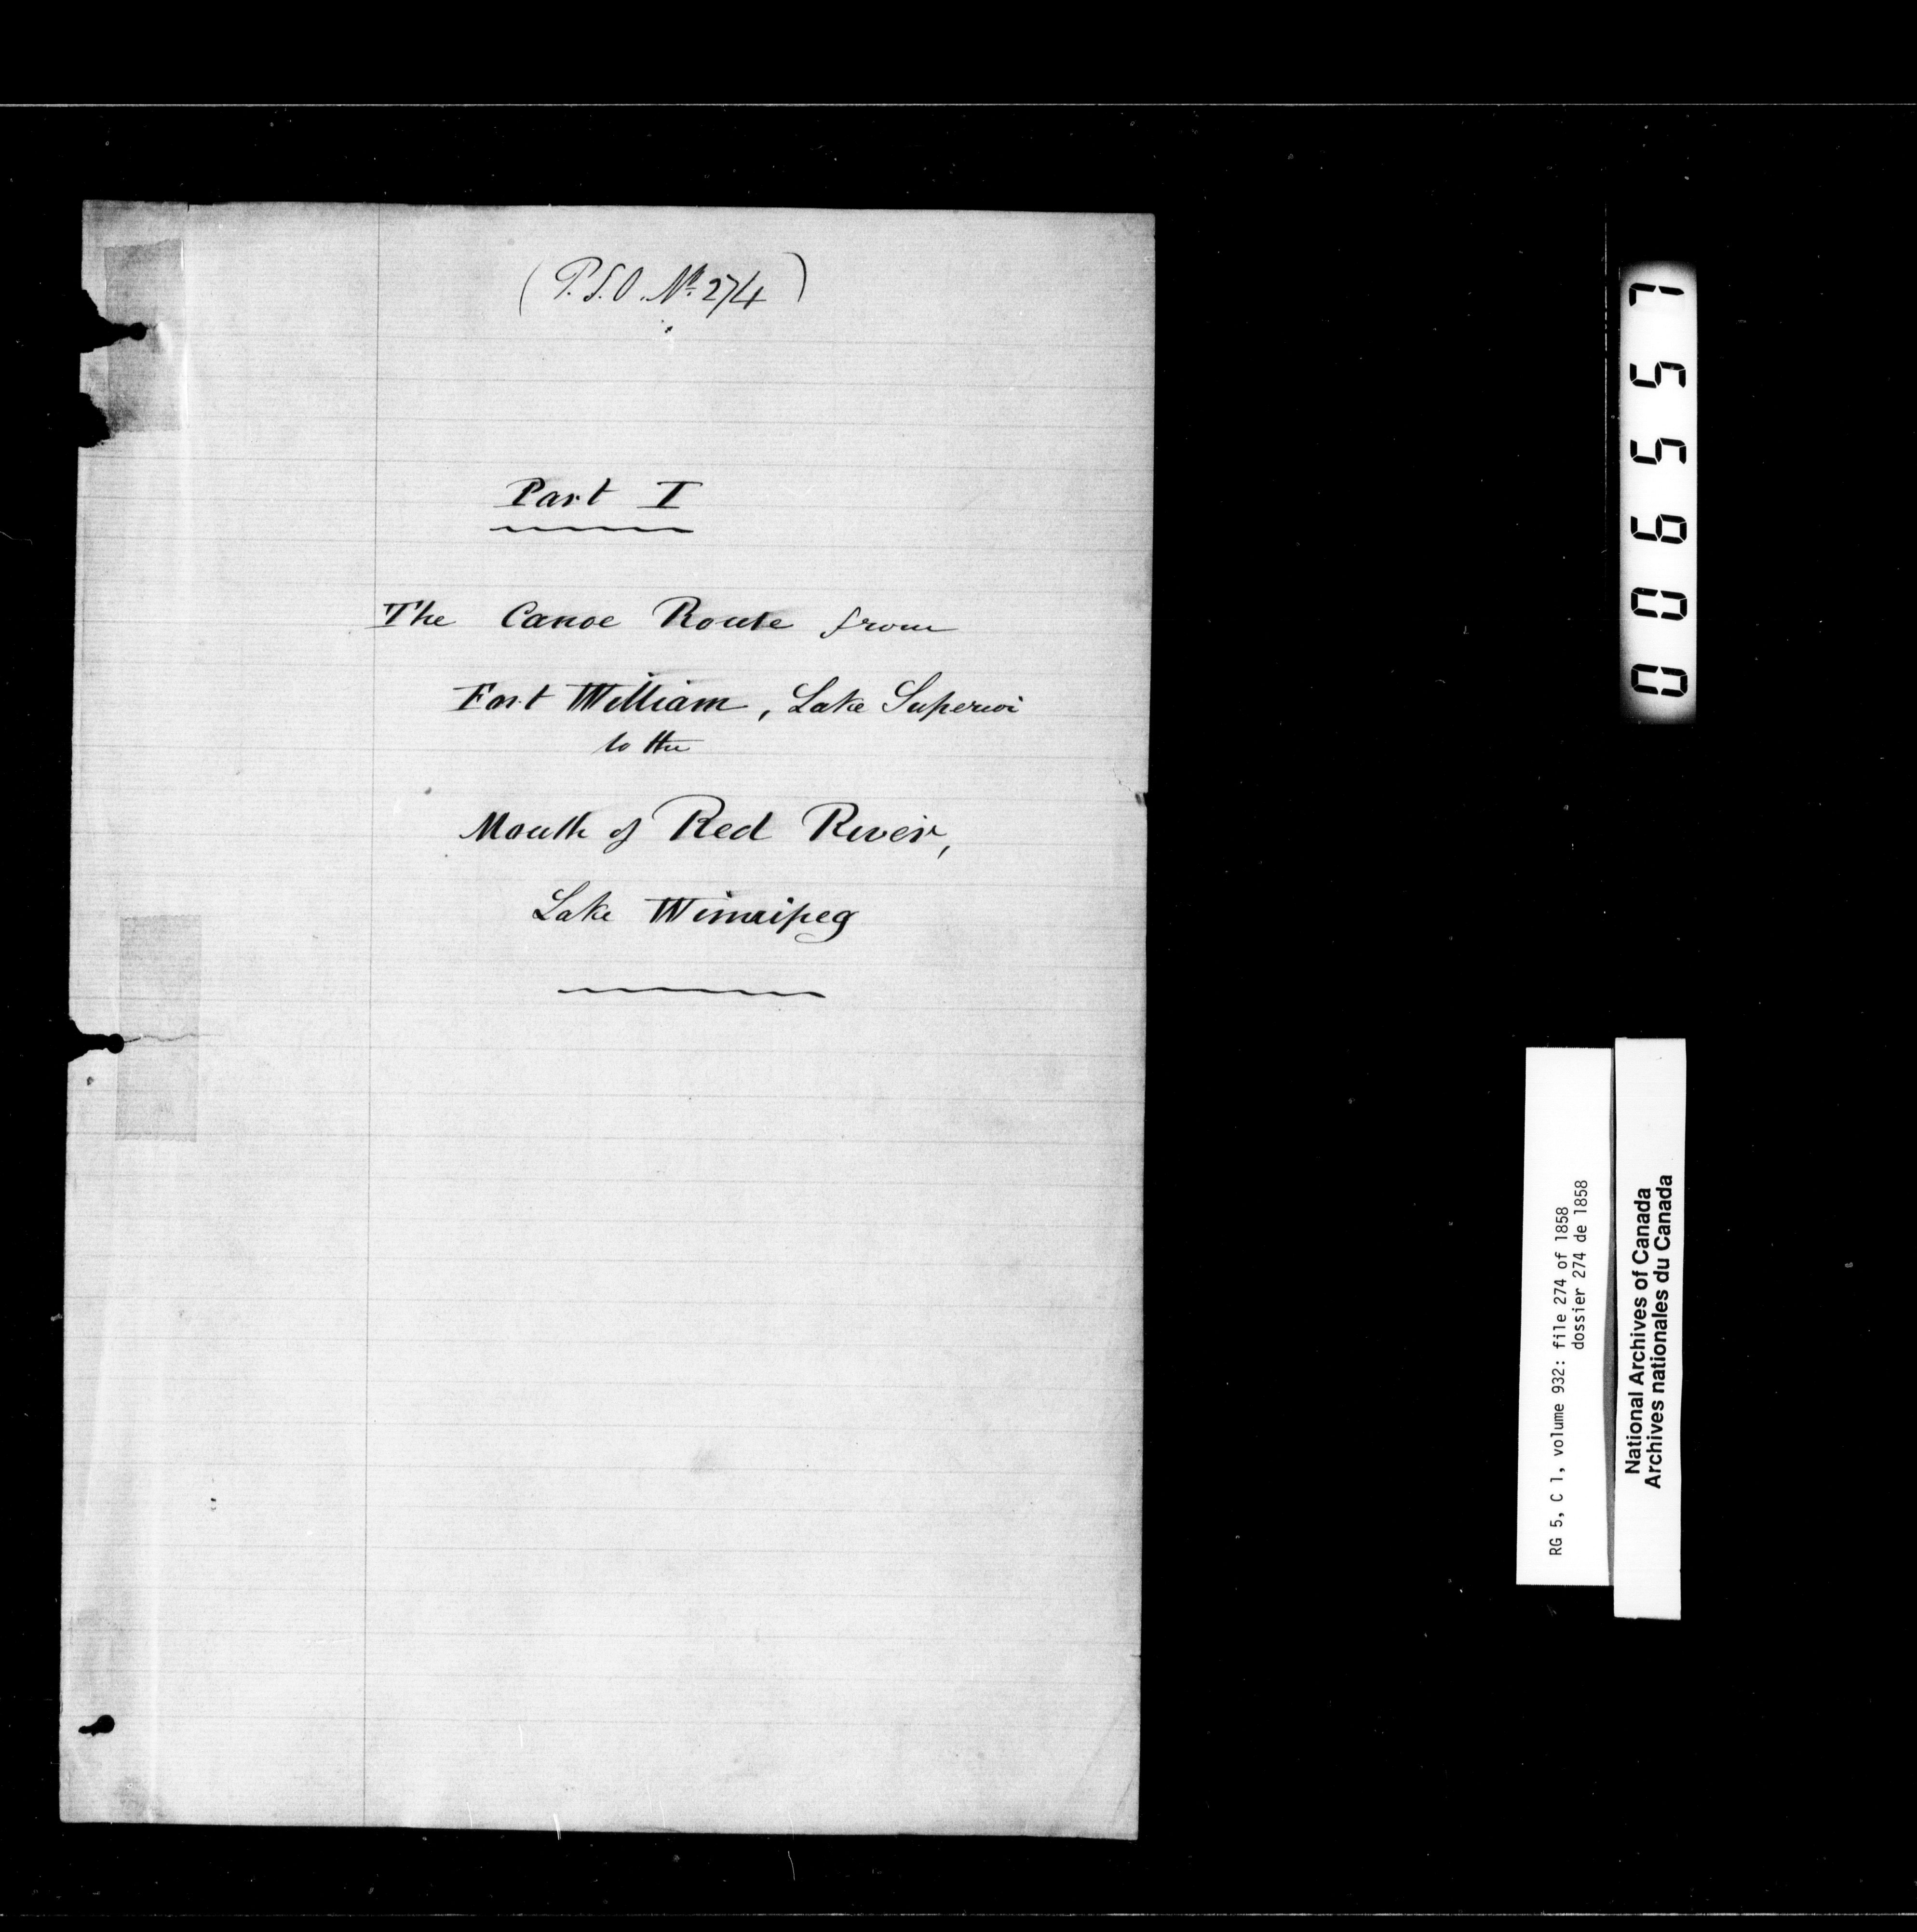 (P.S.O. No. 274)
Part I
The Canoe Route from
Fort William, Lake Superior
to the
Mouth of Red River,
Lake Winnipeg
006557
RG 5, C 1, volume 932: file 274 of 1858
dossier 274 de 1858
National Archives of Canada
Archives nationales du Canada